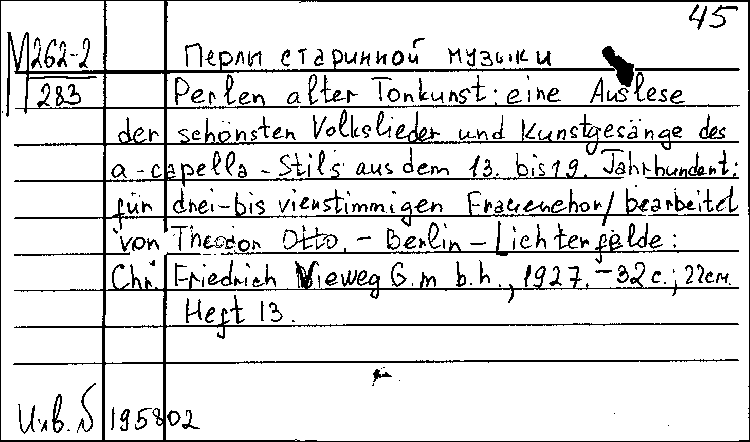 45
М262-2
283
Перли старинной музыки
Perlen alter Tonkunst: eine Auslese
der schönsten Volkslieder und Kunstgesänge des
a-capella-Stils aus dem 13. bis 19. Jahrhundert:
für drei-bis vierstimmigen Frauenchor/bearbeitet
von Theodor Otto. – Berlin – Lichterfelde:
Chr. Friedrich Vieweg G.m.b.h., 1927. – 32 с.; 22см.
Heft 13.
Инв. № 195802